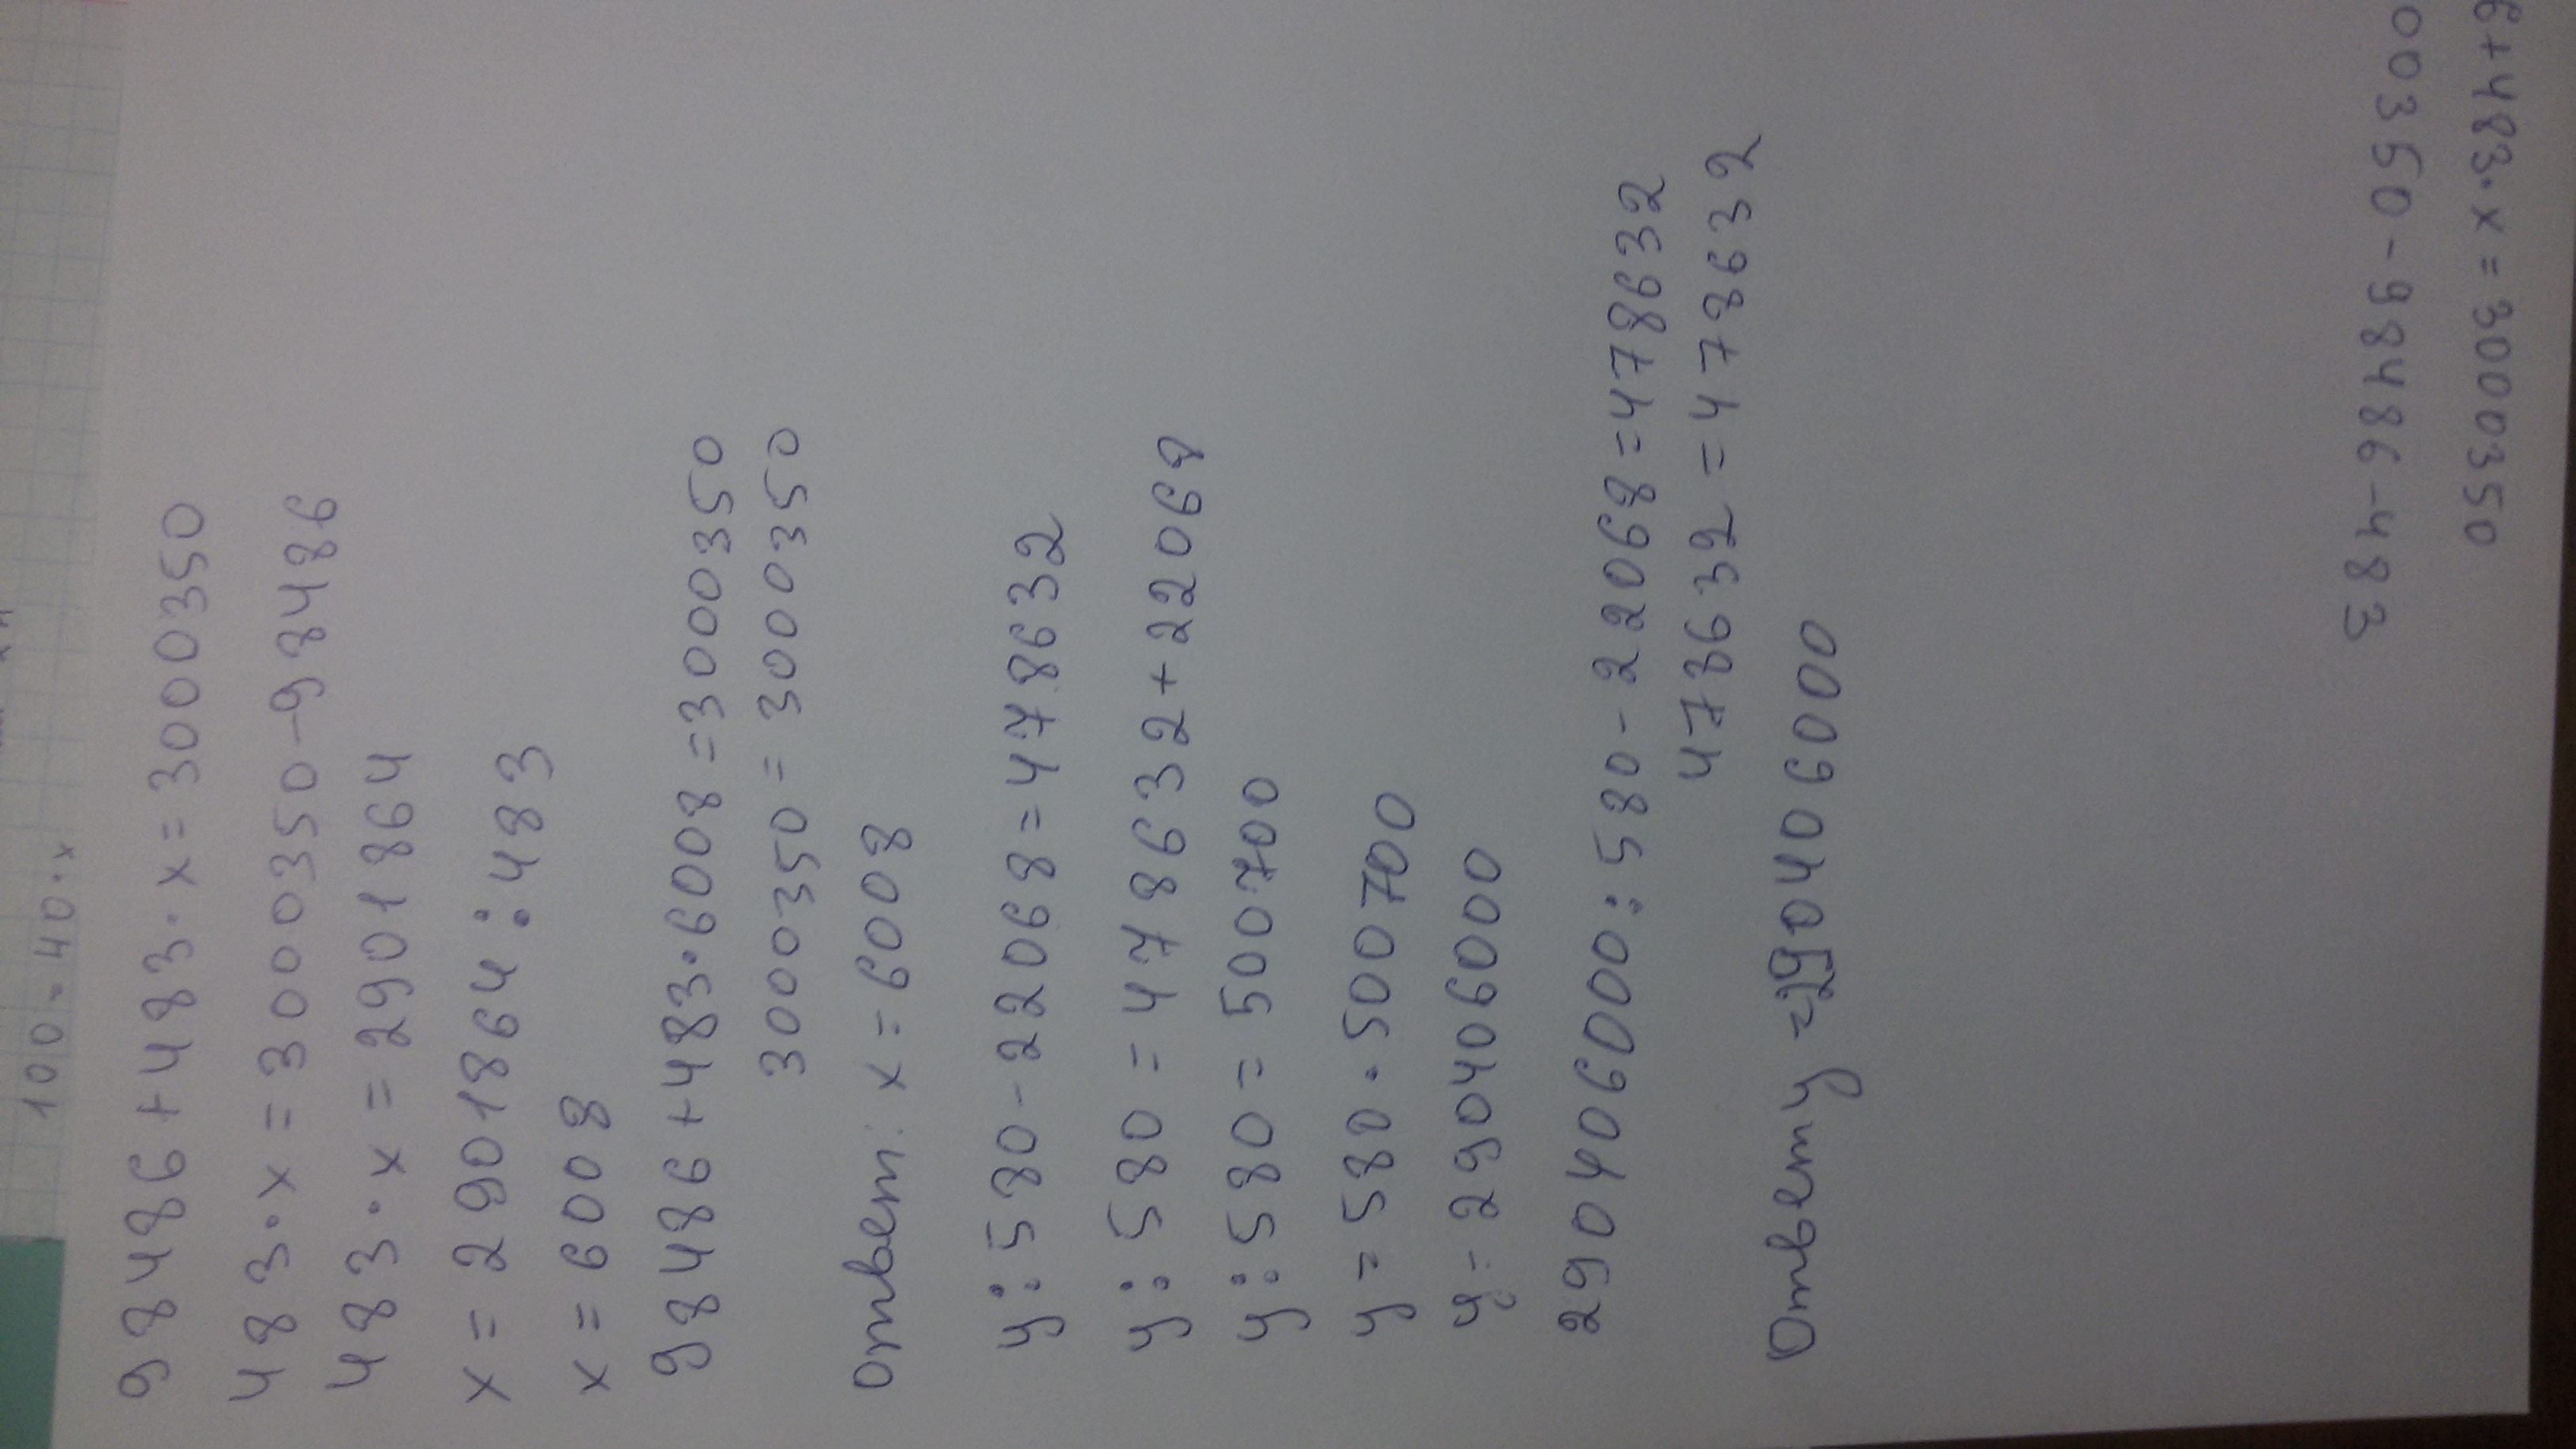 100 = 40 · x
98486 + 483 · x = 3000350
483 · x = 3000350 - 98486
483 · x = 2901864
x = 2901864 : 483
x = 6008
98486 + 483 · 6008 = 3000350
3000350 = 3000350
Ответ: x = 6008
y : 580 - 22068 = 478632
y : 580 = 478632 + 22068
y : 580 = 500700
y = 580 · 500700
y = 290406000
290406000 : 580 - 22068 = 478632
478632 = 478632
Ответ y = 290406000
6 + 483 · x = 3000350
00350 - 98486 - 483